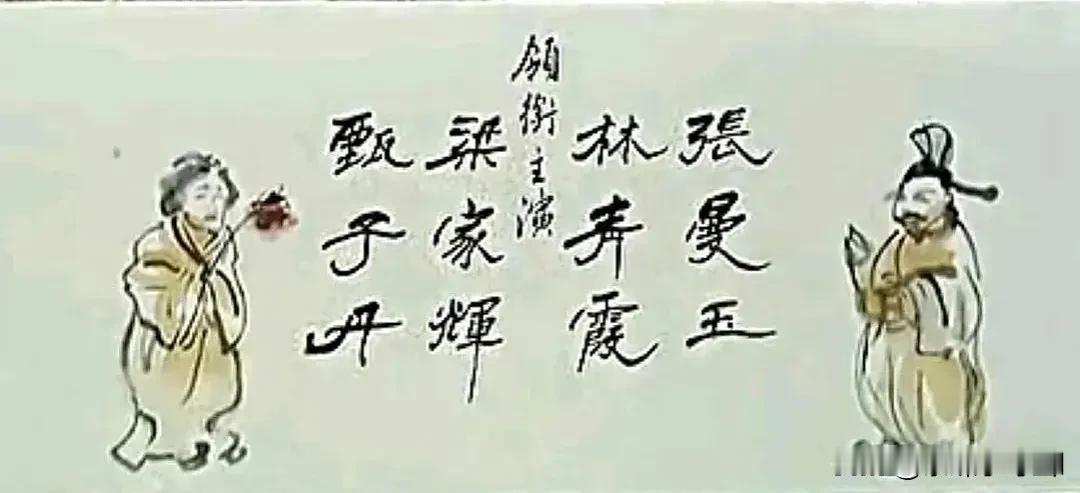 領銜主演
張曼玉
林青霞
梁家輝
甄子丹